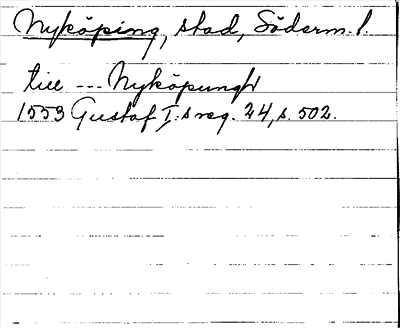 Nyköping, stad, Söderm. l.
till --- Nyköpungh
1553 Gustaf I:s reg. 24, s. 502.